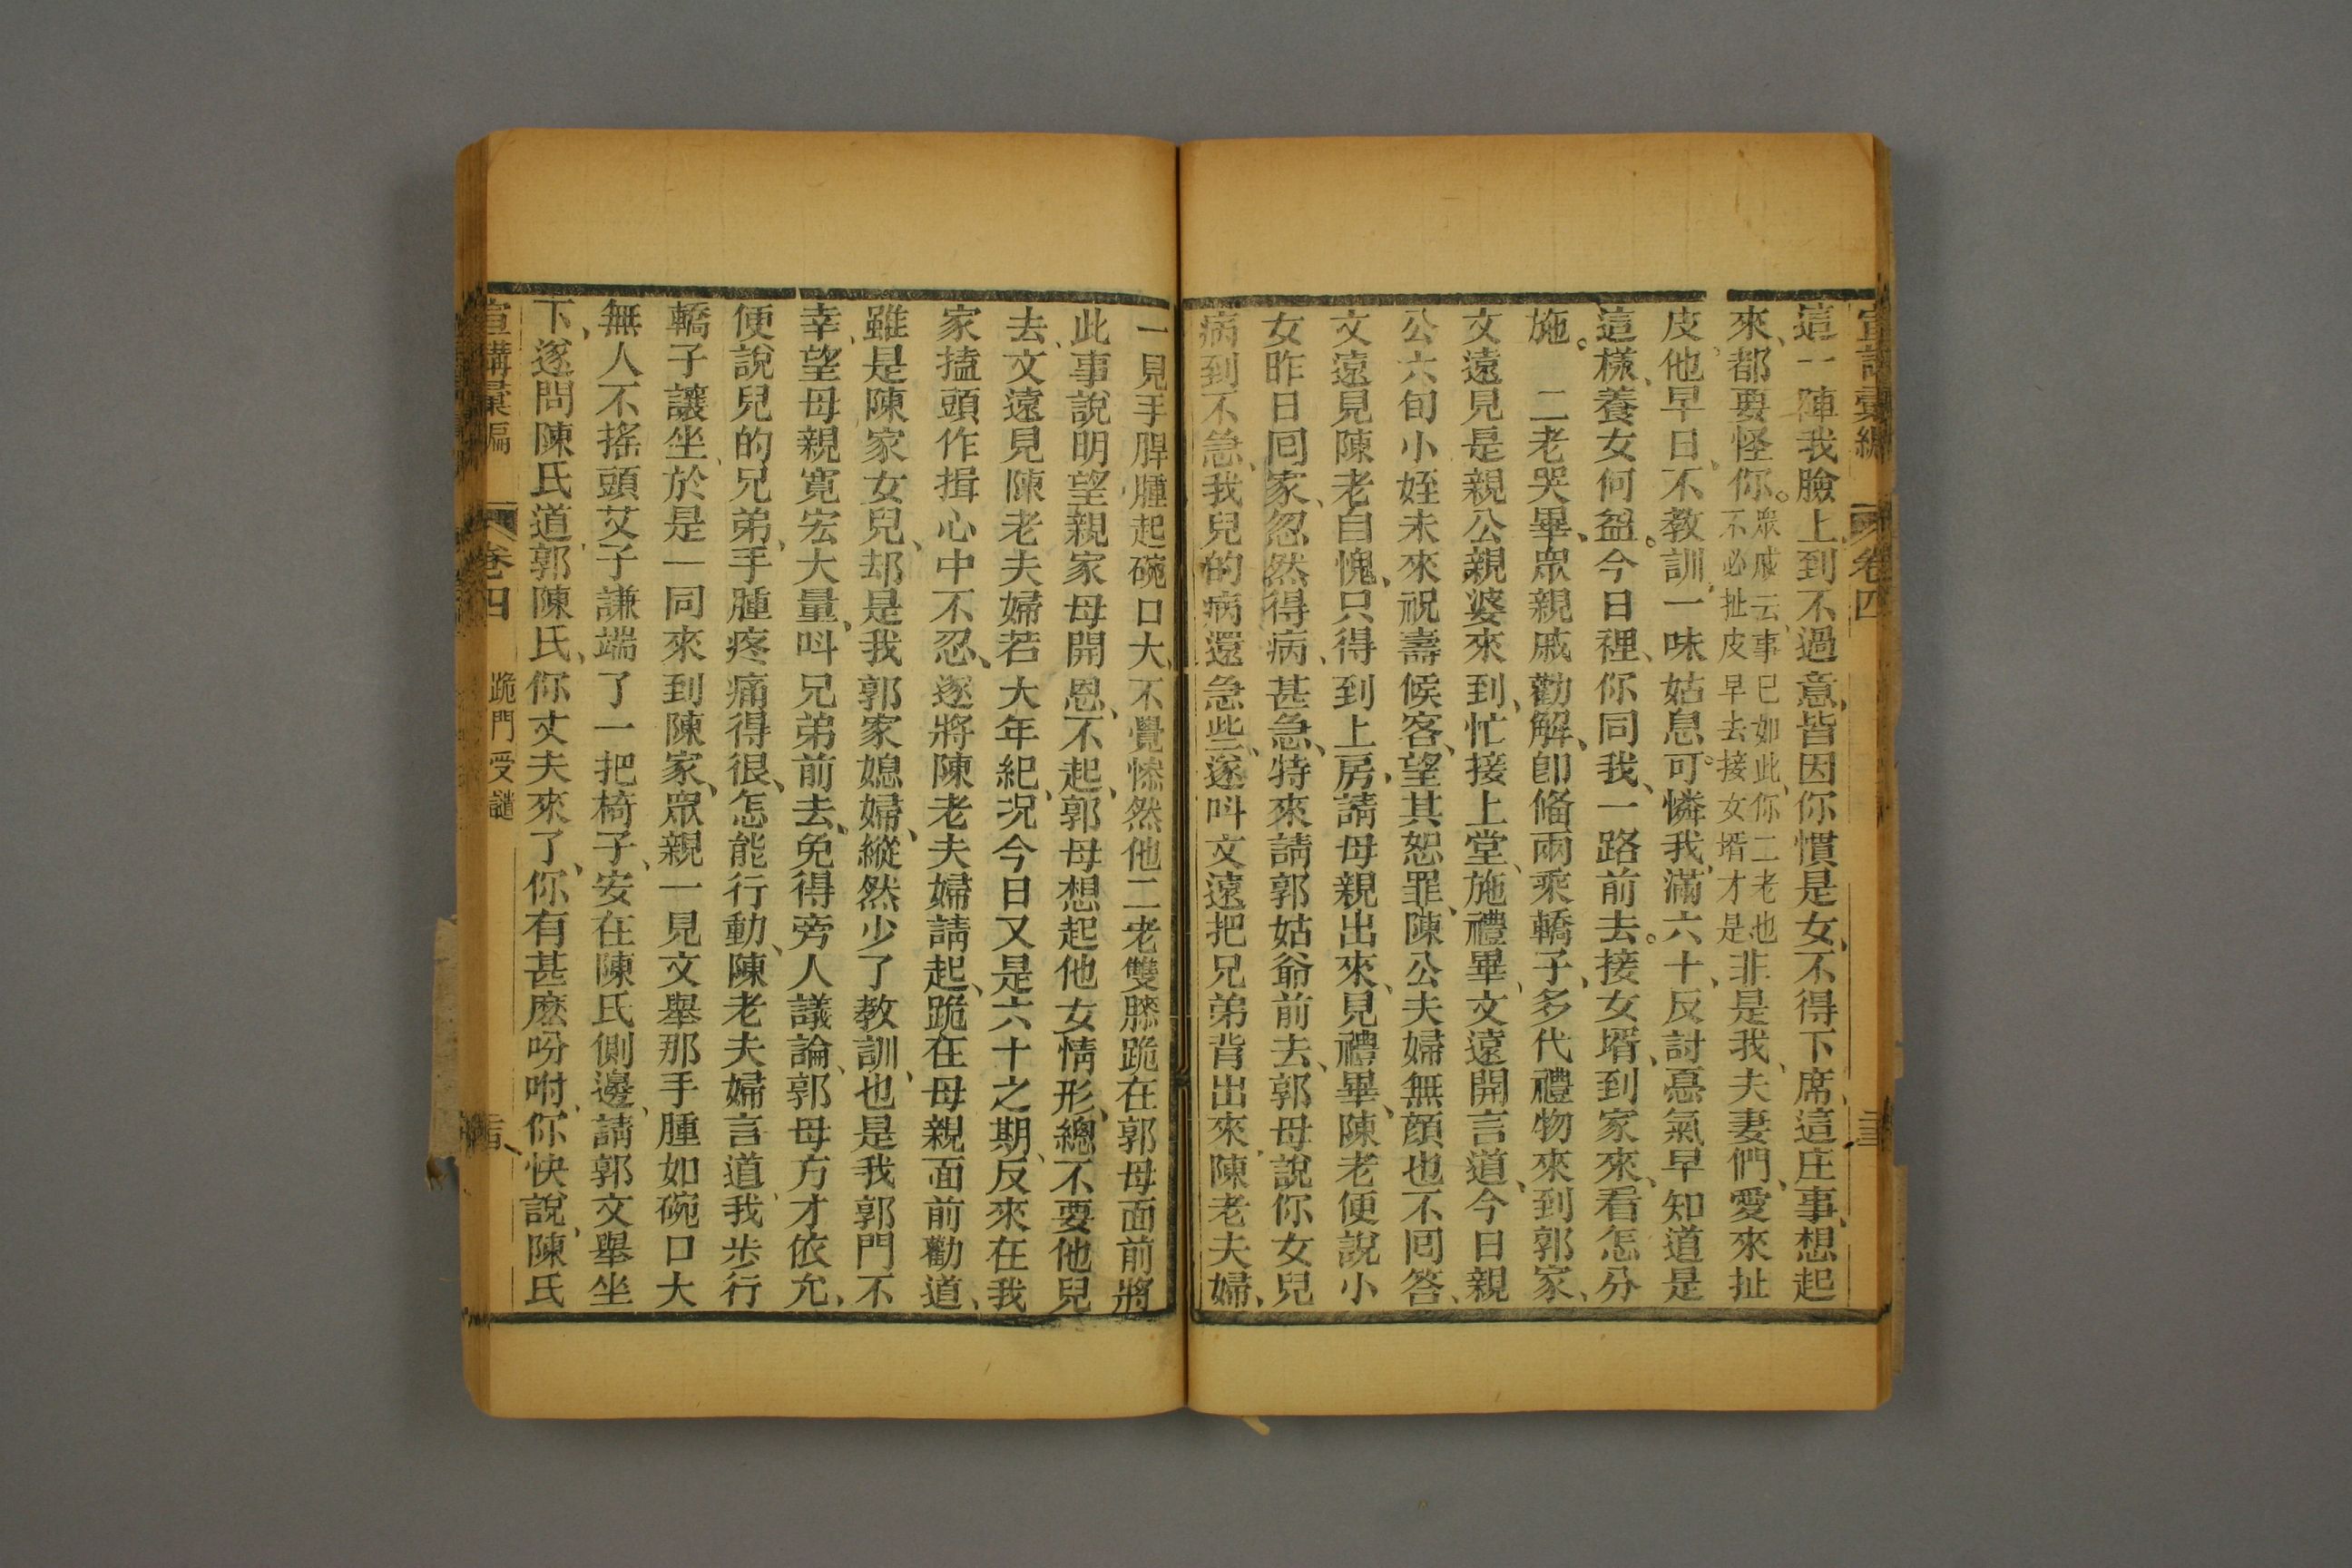 宣講彙編 卷四
這一陣我臉上、到不過意、皆因你慣是女、不得下席、這庄事、想起
來、都要怪你。眾戚云、事已如此、你二老也不必扯皮早去接女壻才是、非是我、夫妻們、愛來扯
皮、他早日、不教訓、一味姑息。可憐我、滿六十、反討憂氣早知道是
這樣、養女何益。今日裡、你同我、一路前去。接女壻、到家來、看怎分
施。 二老哭畢、眾親戚勸解、卽俻兩乘轎子、多代禮物來到郭家、
文遠見是親公親婆來到、忙接上堂、施禮畢、文遠開言道、今日親
公六旬小姪未來祝壽候客、望其恕罪、陳公夫婦無顏也不囘答、
文遠見陳老自愧、只得到上房、請母親出來、見禮畢、陳老便說小
女昨日囘家、忽然得病、甚急、特來請郭姑爺前去、郭母說你女兒
病到不急、我兒的病還急些、遂呌文遠把兄弟背出來、陳老夫婦、
一見手脾腫起碗口大、不覺慘然他二老雙膝跪在郭母面前將
此事說明望親家母開恩、不起、郭母想起他女情形、總不要他兒
去、文遠見陳老夫婦若大年紀、况今日又是六十之期、反來在我
家搕頭作揖心中不忍、遂將陳老夫婦請起、跪在母親面前勸道、
雖是陳家女兒、却是我郭家媳婦、縱然少了教訓、也是我郭門不
幸、望母親寬宏大量、呌兄弟前去、免得旁人議論、郭母方才依允、
便說兒的兄弟、手腫疼痛得很、怎能行動、陳老夫婦言道、我步行
轎子讓坐、於是一同來到陳家、眾親一見文舉那手腫如碗口大
無人不搖頭艾子謙端了一把椅子、安在陳氏側邊、請郭文舉坐
下、遂問陳氏道、郭陳氏、你丈夫來了、你有甚麽吩咐、你快說、陳氏
宣講彙編 卷四 跪門受譴